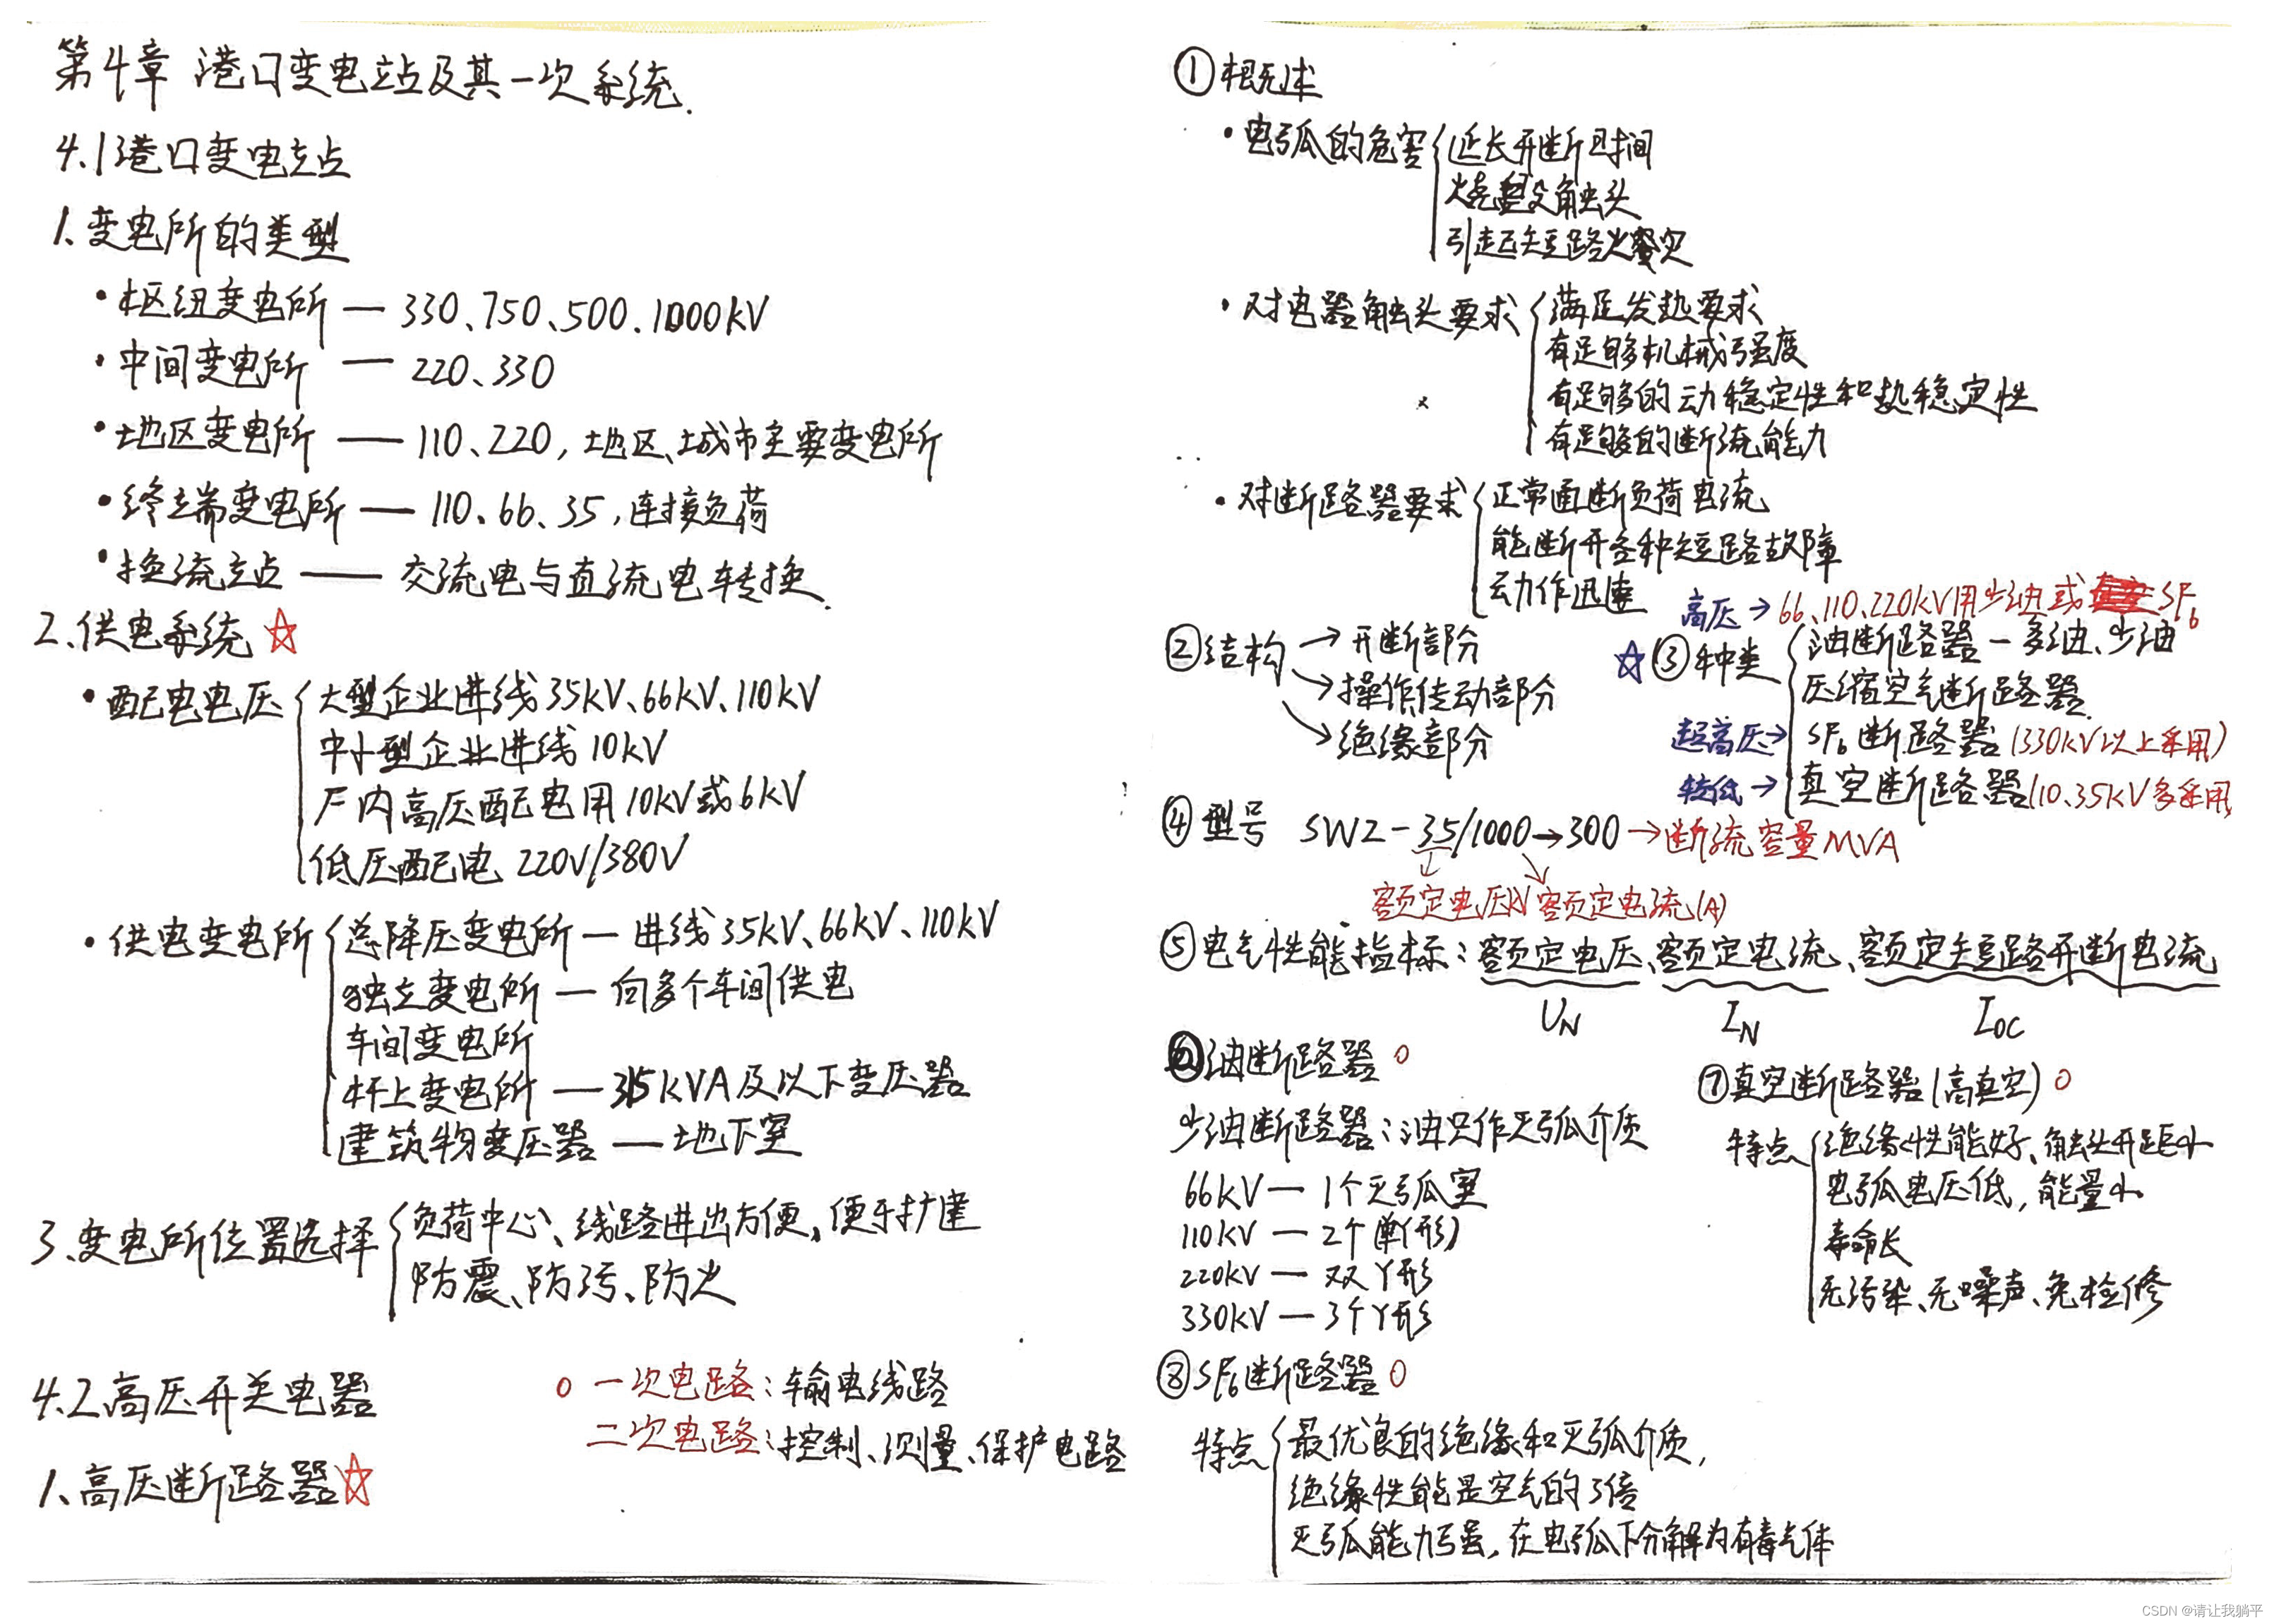 第4章 港口变电站及其一次系统.
4.1 港口变电站
1、变电所的类型
• 枢纽变电所 — 330、750、500、1000kV
• 中间变电所 — 220、330
• 地区变电所 — 110、220, 地区、城市主要变电所
• 终端变电所 — 110、66、35, 连接负荷
• 换流站 — 交流电与直流电转换.
2、供电系统 ☆
• 配电电压 { 大型企业进线 35kV、66kV、110kV
中小型企业进线 10kV
厂内高压配电用 10kV或6kV
低压配电 220V/380V
• 供电变电所 { 总降压变电所 — 进线 35kV、66kV、110kV
独立变电所 — 向多个车间供电
车间变电所
杆上变电所 — 315kVA及以下变压器
建筑物变压器 — 地下室
3、变电所位置选择 { 负荷中心、线路进出方便、便于扩建
防震、防污、防火
4.2 高压开关电器
一次电路: 输电线路
二次电路: 控制、测量、保护电路
1、高压断路器 ☆
① 概述
• 电弧的危害 { 延长开断时间
烧毁触头
引起短路火灾
• 对电器触头要求 { 满足发热要求
有足够机械强度
有足够的动稳定性和热稳定性
有足够的断流能力
• 对断路器要求 { 正常通断负荷电流
能断开各种短路故障
动作迅速
② 结构 → 开断部分
→ 操作传动部分
→ 绝缘部分
高压 → 66、110、220kV用少油或 SF6
☆ ③ 种类 { 油断路器 — 多油、少油
压缩空气断路器
超高压 → SF6断路器 (330kV以上采用)
较低 → 真空断路器 (10、35kV多采用)
④ 型号 SW2-35/1000→300 → 断流容量MVA
额定电压kV 额定电流(A)
⑤ 电气性能指标: 额定电压、额定电流、额定短路开断电流
UN IN IOC
⑥ 油断路器
少油断路器: 油只作灭弧介质
66kV — 1个灭弧室
110kV — 2个 (单Y形)
220kV — 双Y形
330kV — 3个Y形
⑦ 真空断路器 (高真空)
特点 { 绝缘性能好、触头开距小
电弧电压低, 能量小
寿命长
无污染、无噪声、免检修
⑧ SF6断路器
特点 { 最优良的绝缘和灭弧介质,
绝缘性能是空气的3倍
灭弧能力强, 在电弧下分解为有毒气体
CSDN @请让我躺平